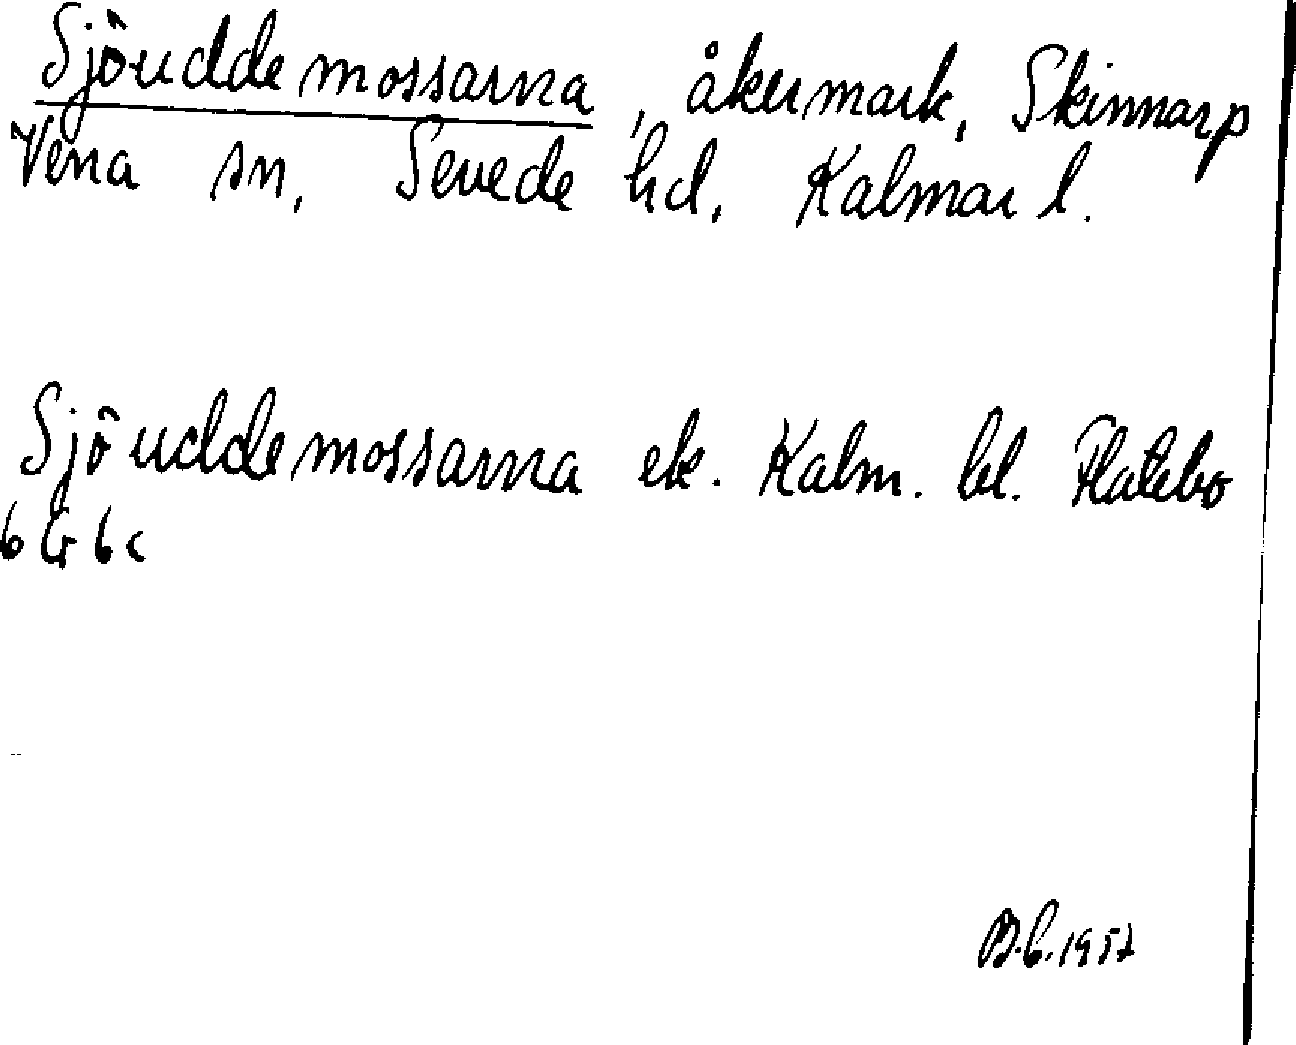 Sjöuddemossarna, åkermark, Skinnarp
Vena sn, Sevede hd, Kalmar l.
Sjöuddemossarna ek. Kalm. bl. Flatebo
6 G 6 c
B.E. 1957